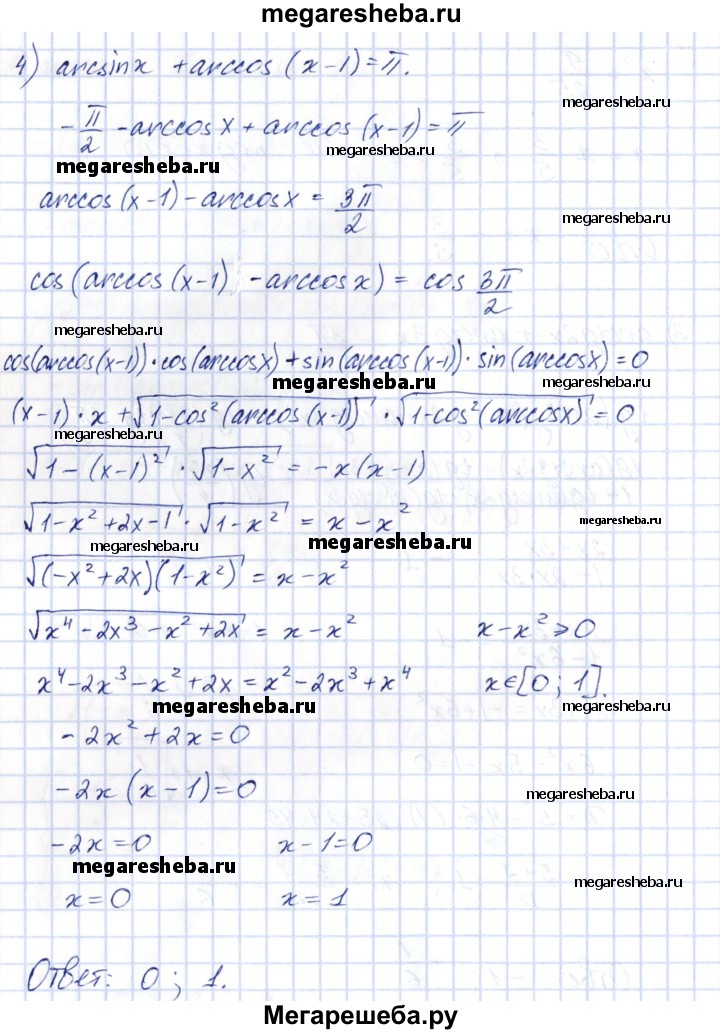 megaresheba.ru
4) arcsinx + arccos (x-1) = π.
megaresheba.ru
- π/2 - arccos x + arccos (x-1) = π
megaresheba.ru
megaresheba.ru
arccos (x-1) - arccos x = 3π/2
megaresheba.ru
cos (arccos (x-1) - arccos x) = cos 3π/2
megaresheba.ru
megaresheba.ru
cos(arccos(x-1)) · cos (arccosx) + sin (arccos (x-1)) · sin (arccosx) = 0
megaresheba.ru
megaresheba.ru
(x-1) · x + √(1-cos² (arccos (x-1))) · √(1-cos² (arccosx)) = 0
√(1-(x-1)²) · √(1-x²) = -x (x-1)
√(1-x²+2x-1) · √(1-x²) = x-x²
megaresheba.ru
megaresheba.ru
megaresheba.ru
√((-x²+2x)(1-x²)) = x-x²
√(x⁴-2x³-x²+2x) = x-x² x-x² ⩾ 0
x⁴-2x³-x²+2x = x²-2x³+x⁴ x∈[0; 1].
megaresheba.ru
megaresheba.ru
-2x²+2x=0
-2x (x-1)=0
megaresheba.ru
-2x=0 x-1=0
megaresheba.ru
megaresheba.ru
x=0 x=1
Ответ: 0; 1.
Мегарешеба.ру